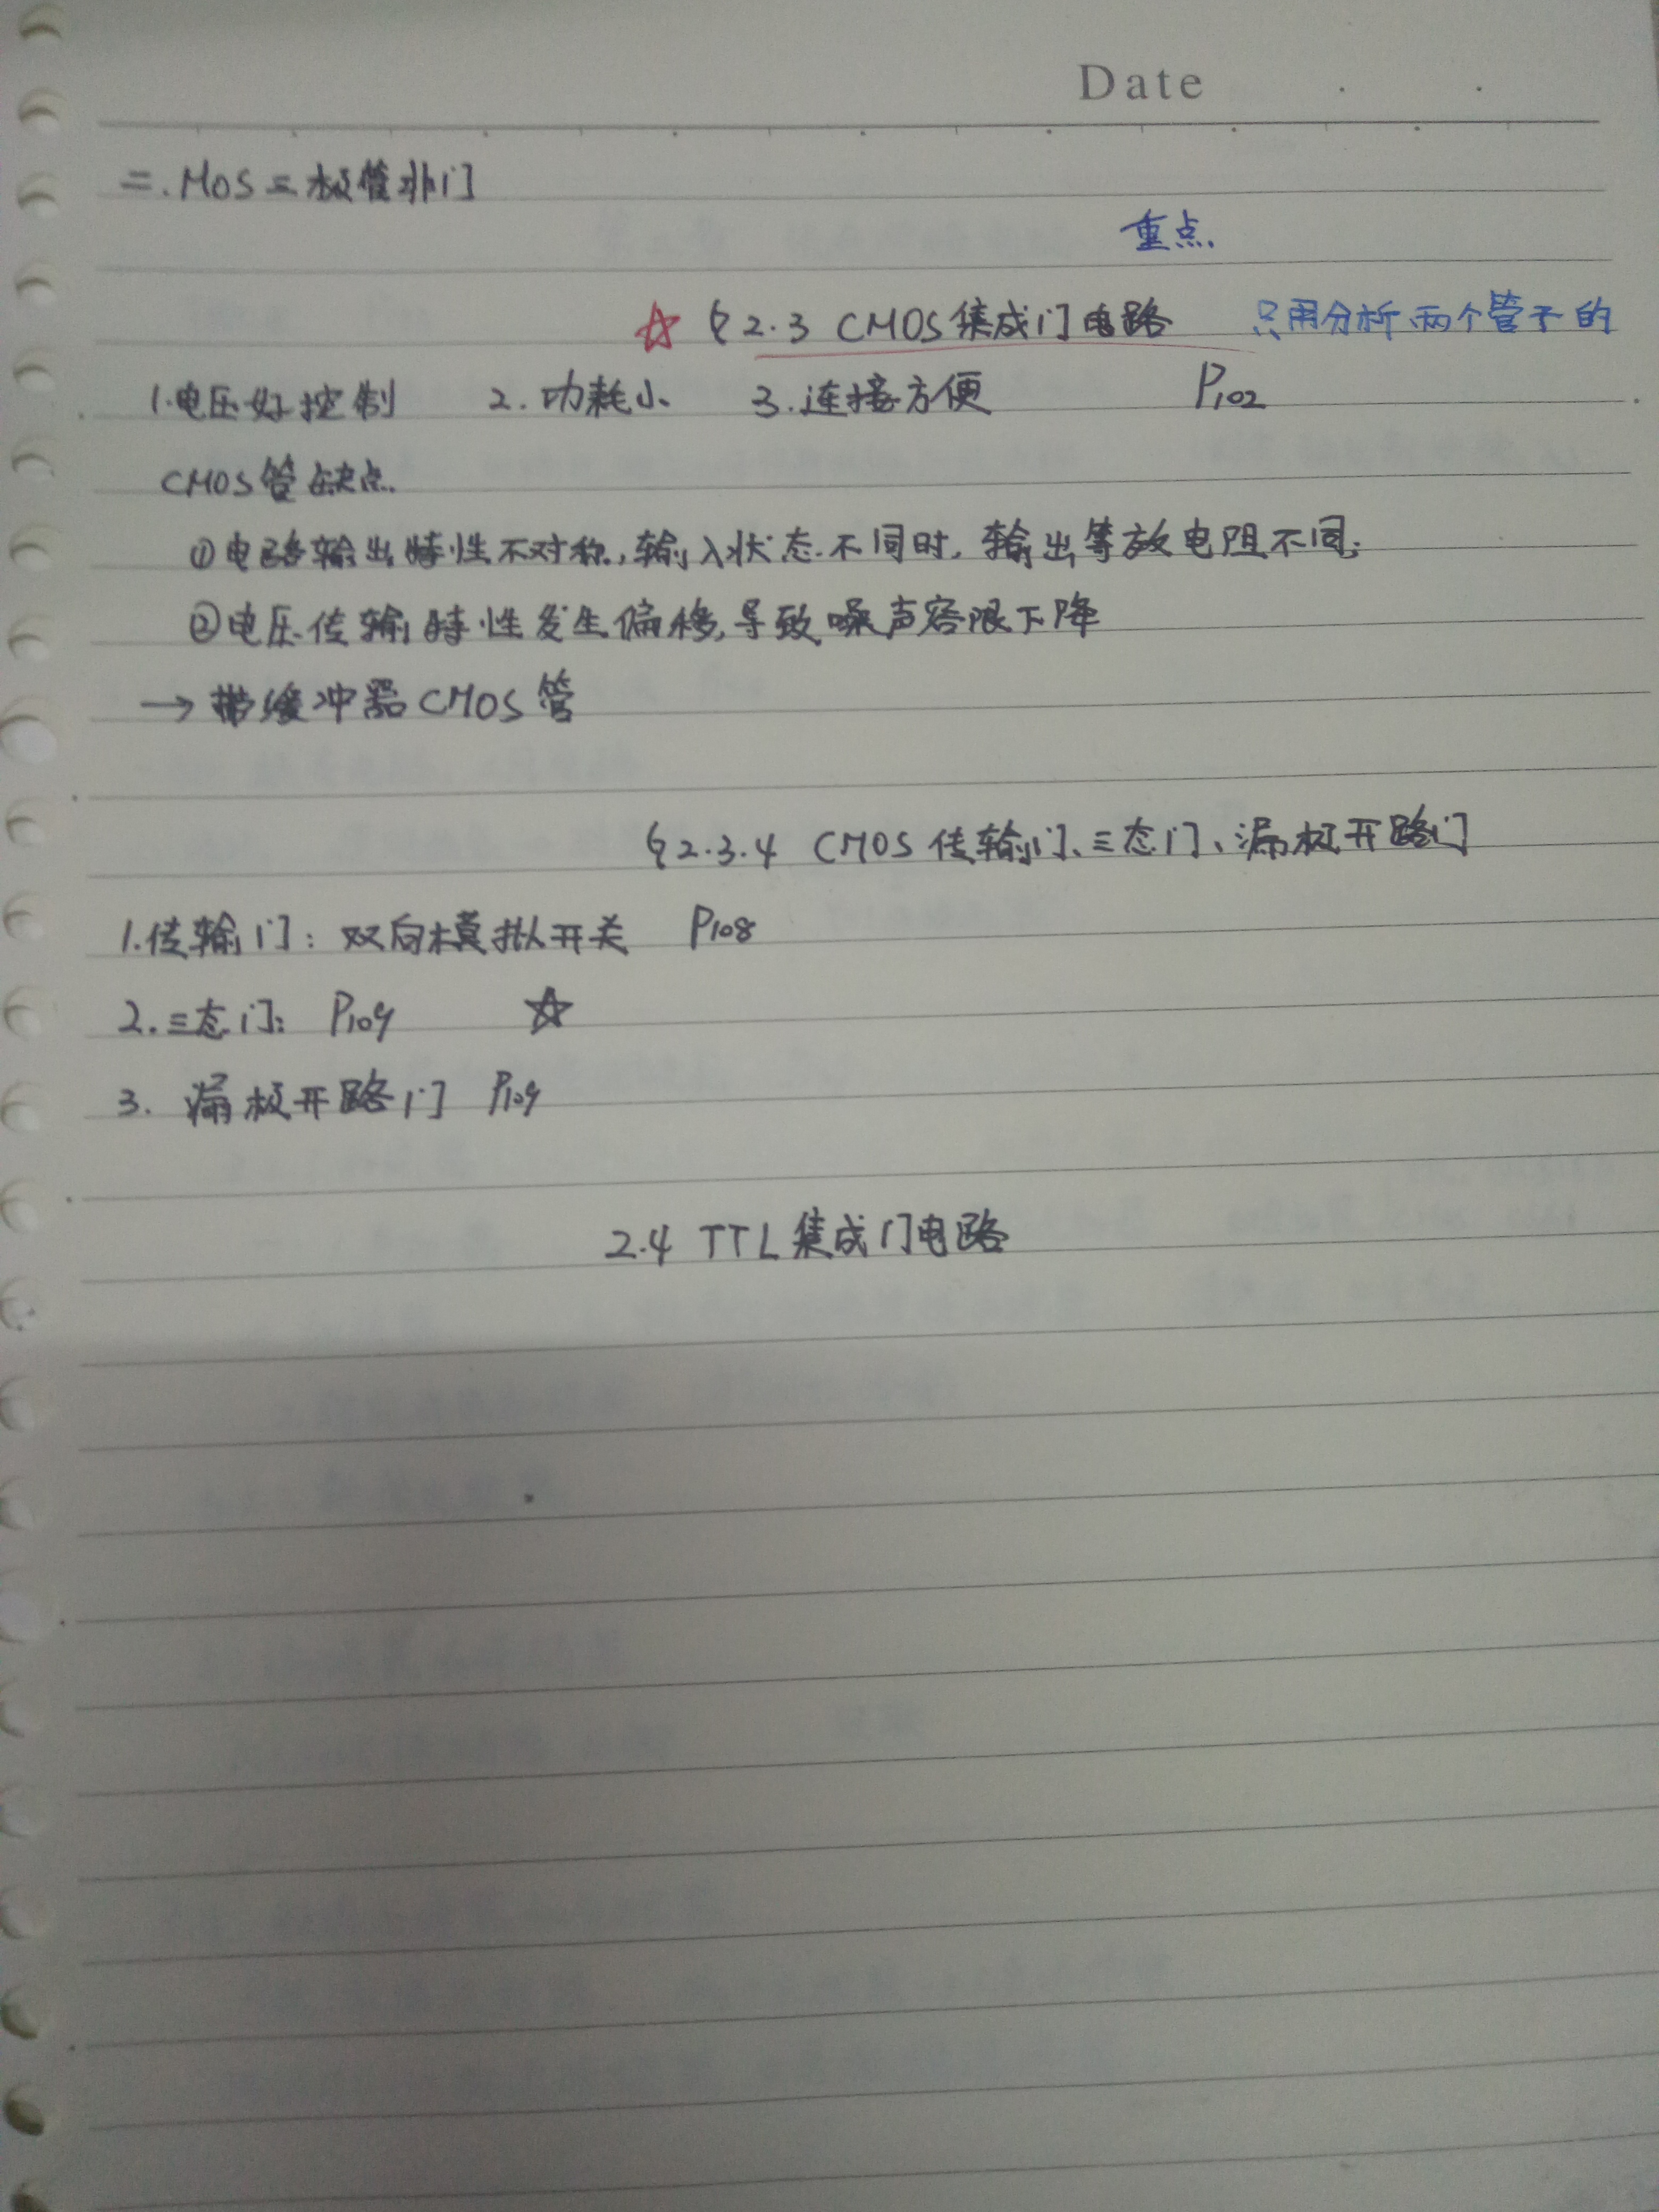 Date
二.MOS三极管非门
重点.
☆ §2.3 CMOS集成门电路 只用分析两个管子的
1.电压好控制 2.功耗小 3.连接方便 P102
CMOS管缺点.
①电路输出特性不对称,输入状态不同时,输出等效电阻不同.
②电压传输特性发生偏移,导致噪声容限下降
→带缓冲器CMOS管
§2.3.4 CMOS传输门、三态门、漏极开路门
1.传输门：双向模拟开关 P108
2.三态门： P109 ☆
3. 漏极开路门 P109
2.4 TTL集成门电路